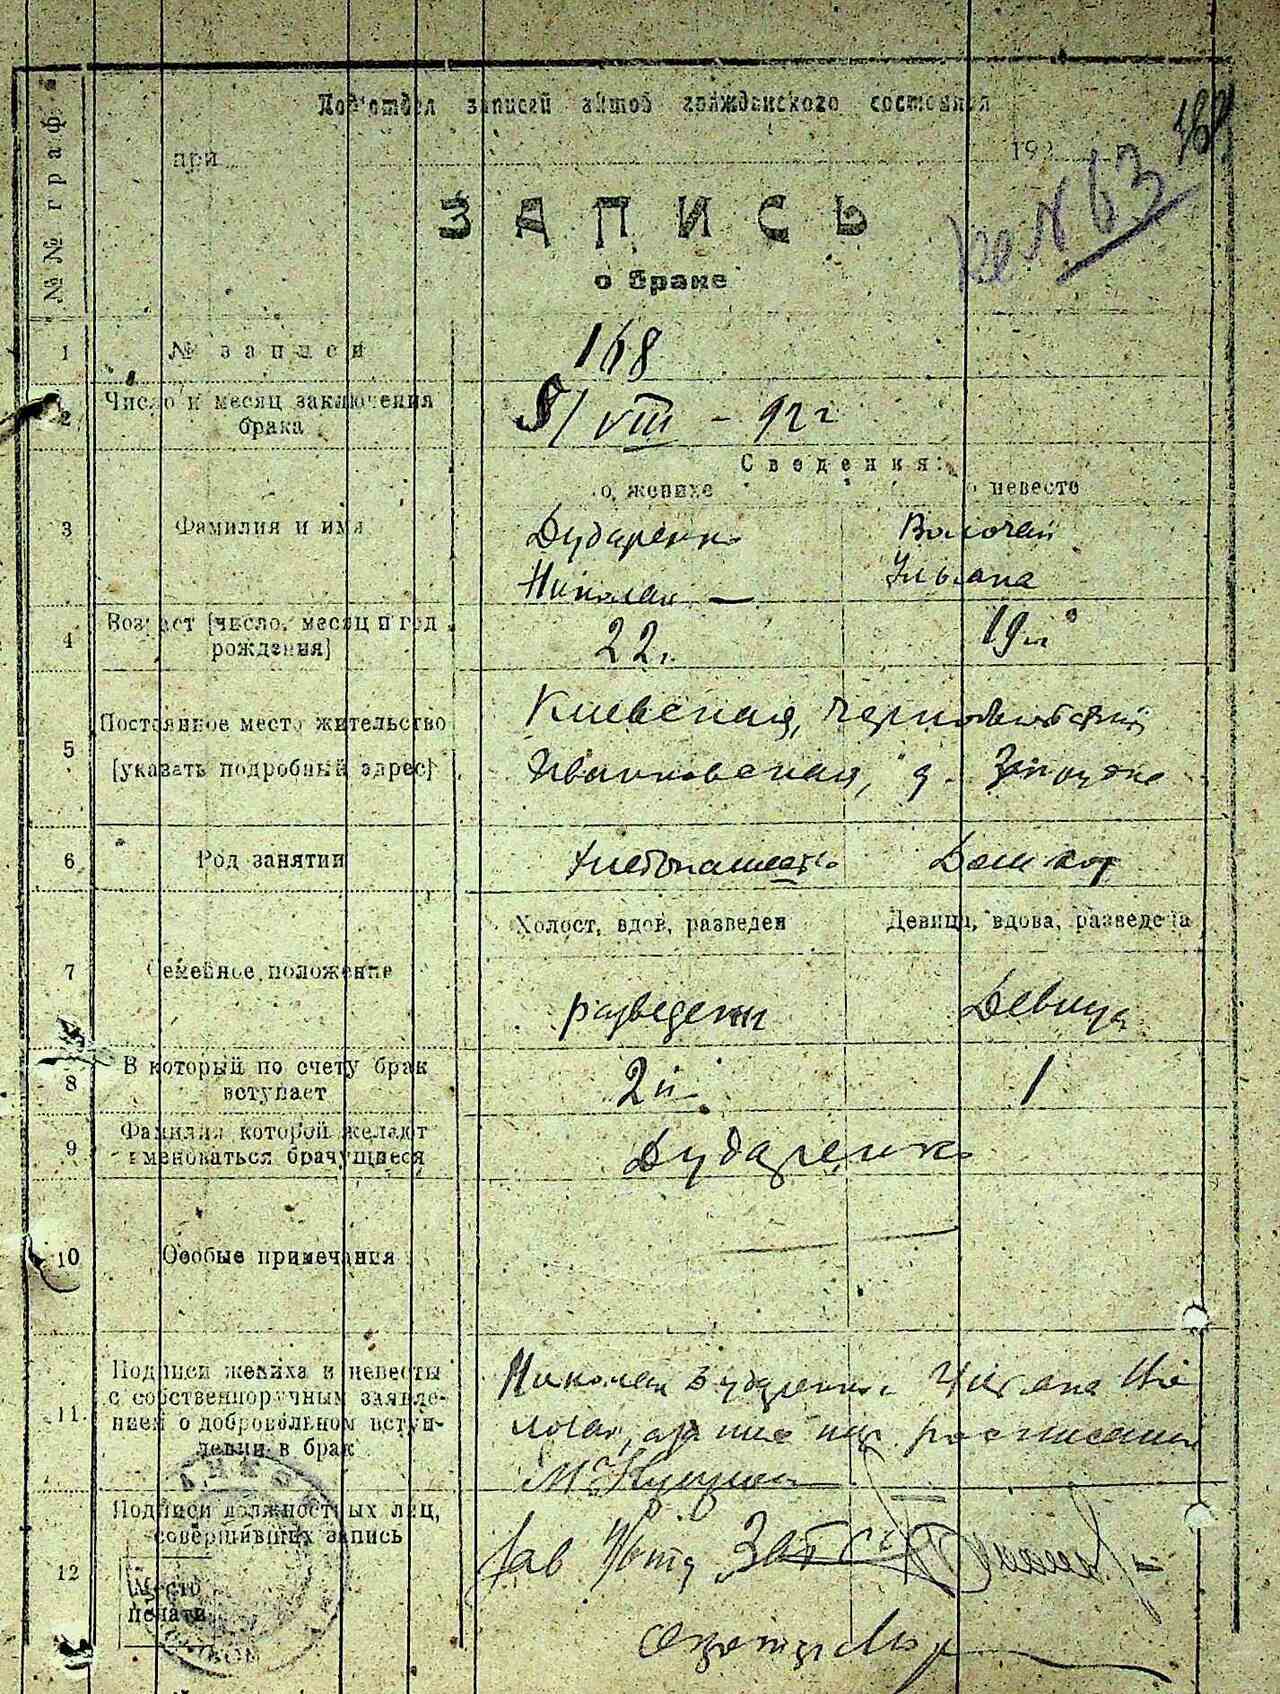 №№ граф.
Под'отдел записей актов гражданского состояния
при 192
168
№ 63
ЗАПИСЬ
о браке
1 № записи 168
2 Число и месяц заключения брака VIII - 92 г
Сведения:
о женихе о невесте
3 Фамилия и имя Дударенко
Николай — Ульяна
4 Возраст [число, месяц и год рождения] 22 г. 19 л
5 Постоянное место жительство Киевская, Чернобыльский
[указать подробный адрес] Иванковская, д.
6 Род занятии хлебопашество Дом хоз
Холост, вдов, разведен Девица, вдова, разведена
7 Семейное положение разведен Девица
8 В который по счету брак вступает 2й 1
9 Фамилия которой желают именоваться брачущиеся Дударенко
10 Особые примечания —
11 Подписи жениха и невесты с собственноручным заявлением о добровольном вступлении в брак Николай Дударенко Ульяна
12 Подписи должностных лиц, совершивших запись Зав
Место печати